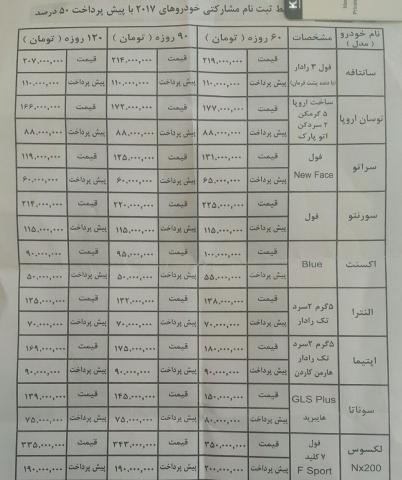 ط ثبت نام مشارکتی خودروهای ۲۰۱۷ با پیش پرداخت ۵۰ درصد
نام خودرو ( مدل ) مشخصات ۶۰ روزه ( تومان ) ۹۰ روزه ( تومان ) ۱۲۰ روزه ( تومان )
سانتافه فول ۳ رادار قیمت ۲۱۹,۰۰۰,۰۰۰ قیمت ۲۱۴,۰۰۰,۰۰۰ قیمت ۲۰۷,۰۰۰,۰۰۰
(با دنده پشت فرمان) پیش پرداخت ۱۱۰,۰۰۰,۰۰۰ پیش پرداخت ۱۱۰,۰۰۰,۰۰۰ پیش پرداخت ۱۱۰,۰۰۰,۰۰۰
توسان اروپا ساخت اروپا ۵ گرمکن قیمت ۱۷۷,۰۰۰,۰۰۰ قیمت ۱۷۲,۰۰۰,۰۰۰ قیمت ۱۶۶,۰۰۰,۰۰۰
۲ سردکن اتو پارک پیش پرداخت ۸۸,۰۰۰,۰۰۰ پیش پرداخت ۸۸,۰۰۰,۰۰۰ پیش پرداخت ۸۸,۰۰۰,۰۰۰
سراتو فول قیمت ۱۳۱,۰۰۰,۰۰۰ قیمت ۱۲۵,۰۰۰,۰۰۰ قیمت ۱۱۹,۰۰۰,۰۰۰
New Face پیش پرداخت ۶۵,۰۰۰,۰۰۰ پیش پرداخت ۶۰,۰۰۰,۰۰۰ پیش پرداخت ۶۰,۰۰۰,۰۰۰
سورنتو فول قیمت ۲۲۵,۰۰۰,۰۰۰ قیمت ۲۲۰,۰۰۰,۰۰۰ قیمت ۲۱۴,۰۰۰,۰۰۰
پیش پرداخت ۱۱۵,۰۰۰,۰۰۰ پیش پرداخت ۱۱۵,۰۰۰,۰۰۰ پیش پرداخت ۱۱۵,۰۰۰,۰۰۰
اکسنت Blue قیمت ۱۰۰,۰۰۰,۰۰۰ قیمت ۹۵,۰۰۰,۰۰۰ قیمت ۹۰,۰۰۰,۰۰۰
پیش پرداخت ۵۵,۰۰۰,۰۰۰ پیش پرداخت ۵۰,۰۰۰,۰۰۰ پیش پرداخت ۵۰,۰۰۰,۰۰۰
النترا ۵گرم ۲سرد قیمت ۱۳۸,۰۰۰,۰۰۰ قیمت ۱۳۲,۰۰۰,۰۰۰ قیمت ۱۲۵,۰۰۰,۰۰۰
تک رادار پیش پرداخت ۷۰,۰۰۰,۰۰۰ پیش پرداخت ۷۰,۰۰۰,۰۰۰ پیش پرداخت ۷۰,۰۰۰,۰۰۰
اپتیما ۵گرم ۲سرد تک رادار قیمت ۱۸۰,۰۰۰,۰۰۰ قیمت ۱۷۵,۰۰۰,۰۰۰ قیمت ۱۶۹,۰۰۰,۰۰۰
هارمن کاردن پیش پرداخت ۹۰,۰۰۰,۰۰۰ پیش پرداخت ۹۰,۰۰۰,۰۰۰ پیش پرداخت ۹۰,۰۰۰,۰۰۰
سوناتا GLS Plus قیمت ۱۵۰,۰۰۰,۰۰۰ قیمت ۱۴۵,۰۰۰,۰۰۰ قیمت ۱۳۹,۰۰۰,۰۰۰
هایبرید پیش پرداخت ۸۰,۰۰۰,۰۰۰ پیش پرداخت ۷۵,۰۰۰,۰۰۰ پیش پرداخت ۷۵,۰۰۰,۰۰۰
لکسوس فول ۷ کلید قیمت ۳۵۰,۰۰۰,۰۰۰ قیمت ۳۴۳,۰۰۰,۰۰۰ قیمت ۳۳۵,۰۰۰,۰۰۰
Nx200 F Sport پیش پرداخت ۲۰۰,۰۰۰,۰۰۰ پیش پرداخت ۱۹۰,۰۰۰,۰۰۰ پیش پرداخت ۱۹۰,۰۰۰,۰۰۰